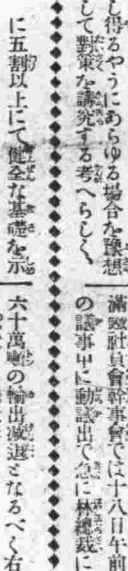 し得るやうにあらゆる場合を豫想
して對策を講究する考へらしく、
に五割以上にて健全な基礎を示
滿鐵社員會幹事會では十八日午前
の議事中に動議出で急に林總裁に
六十萬噸の輸出減退となるべく右